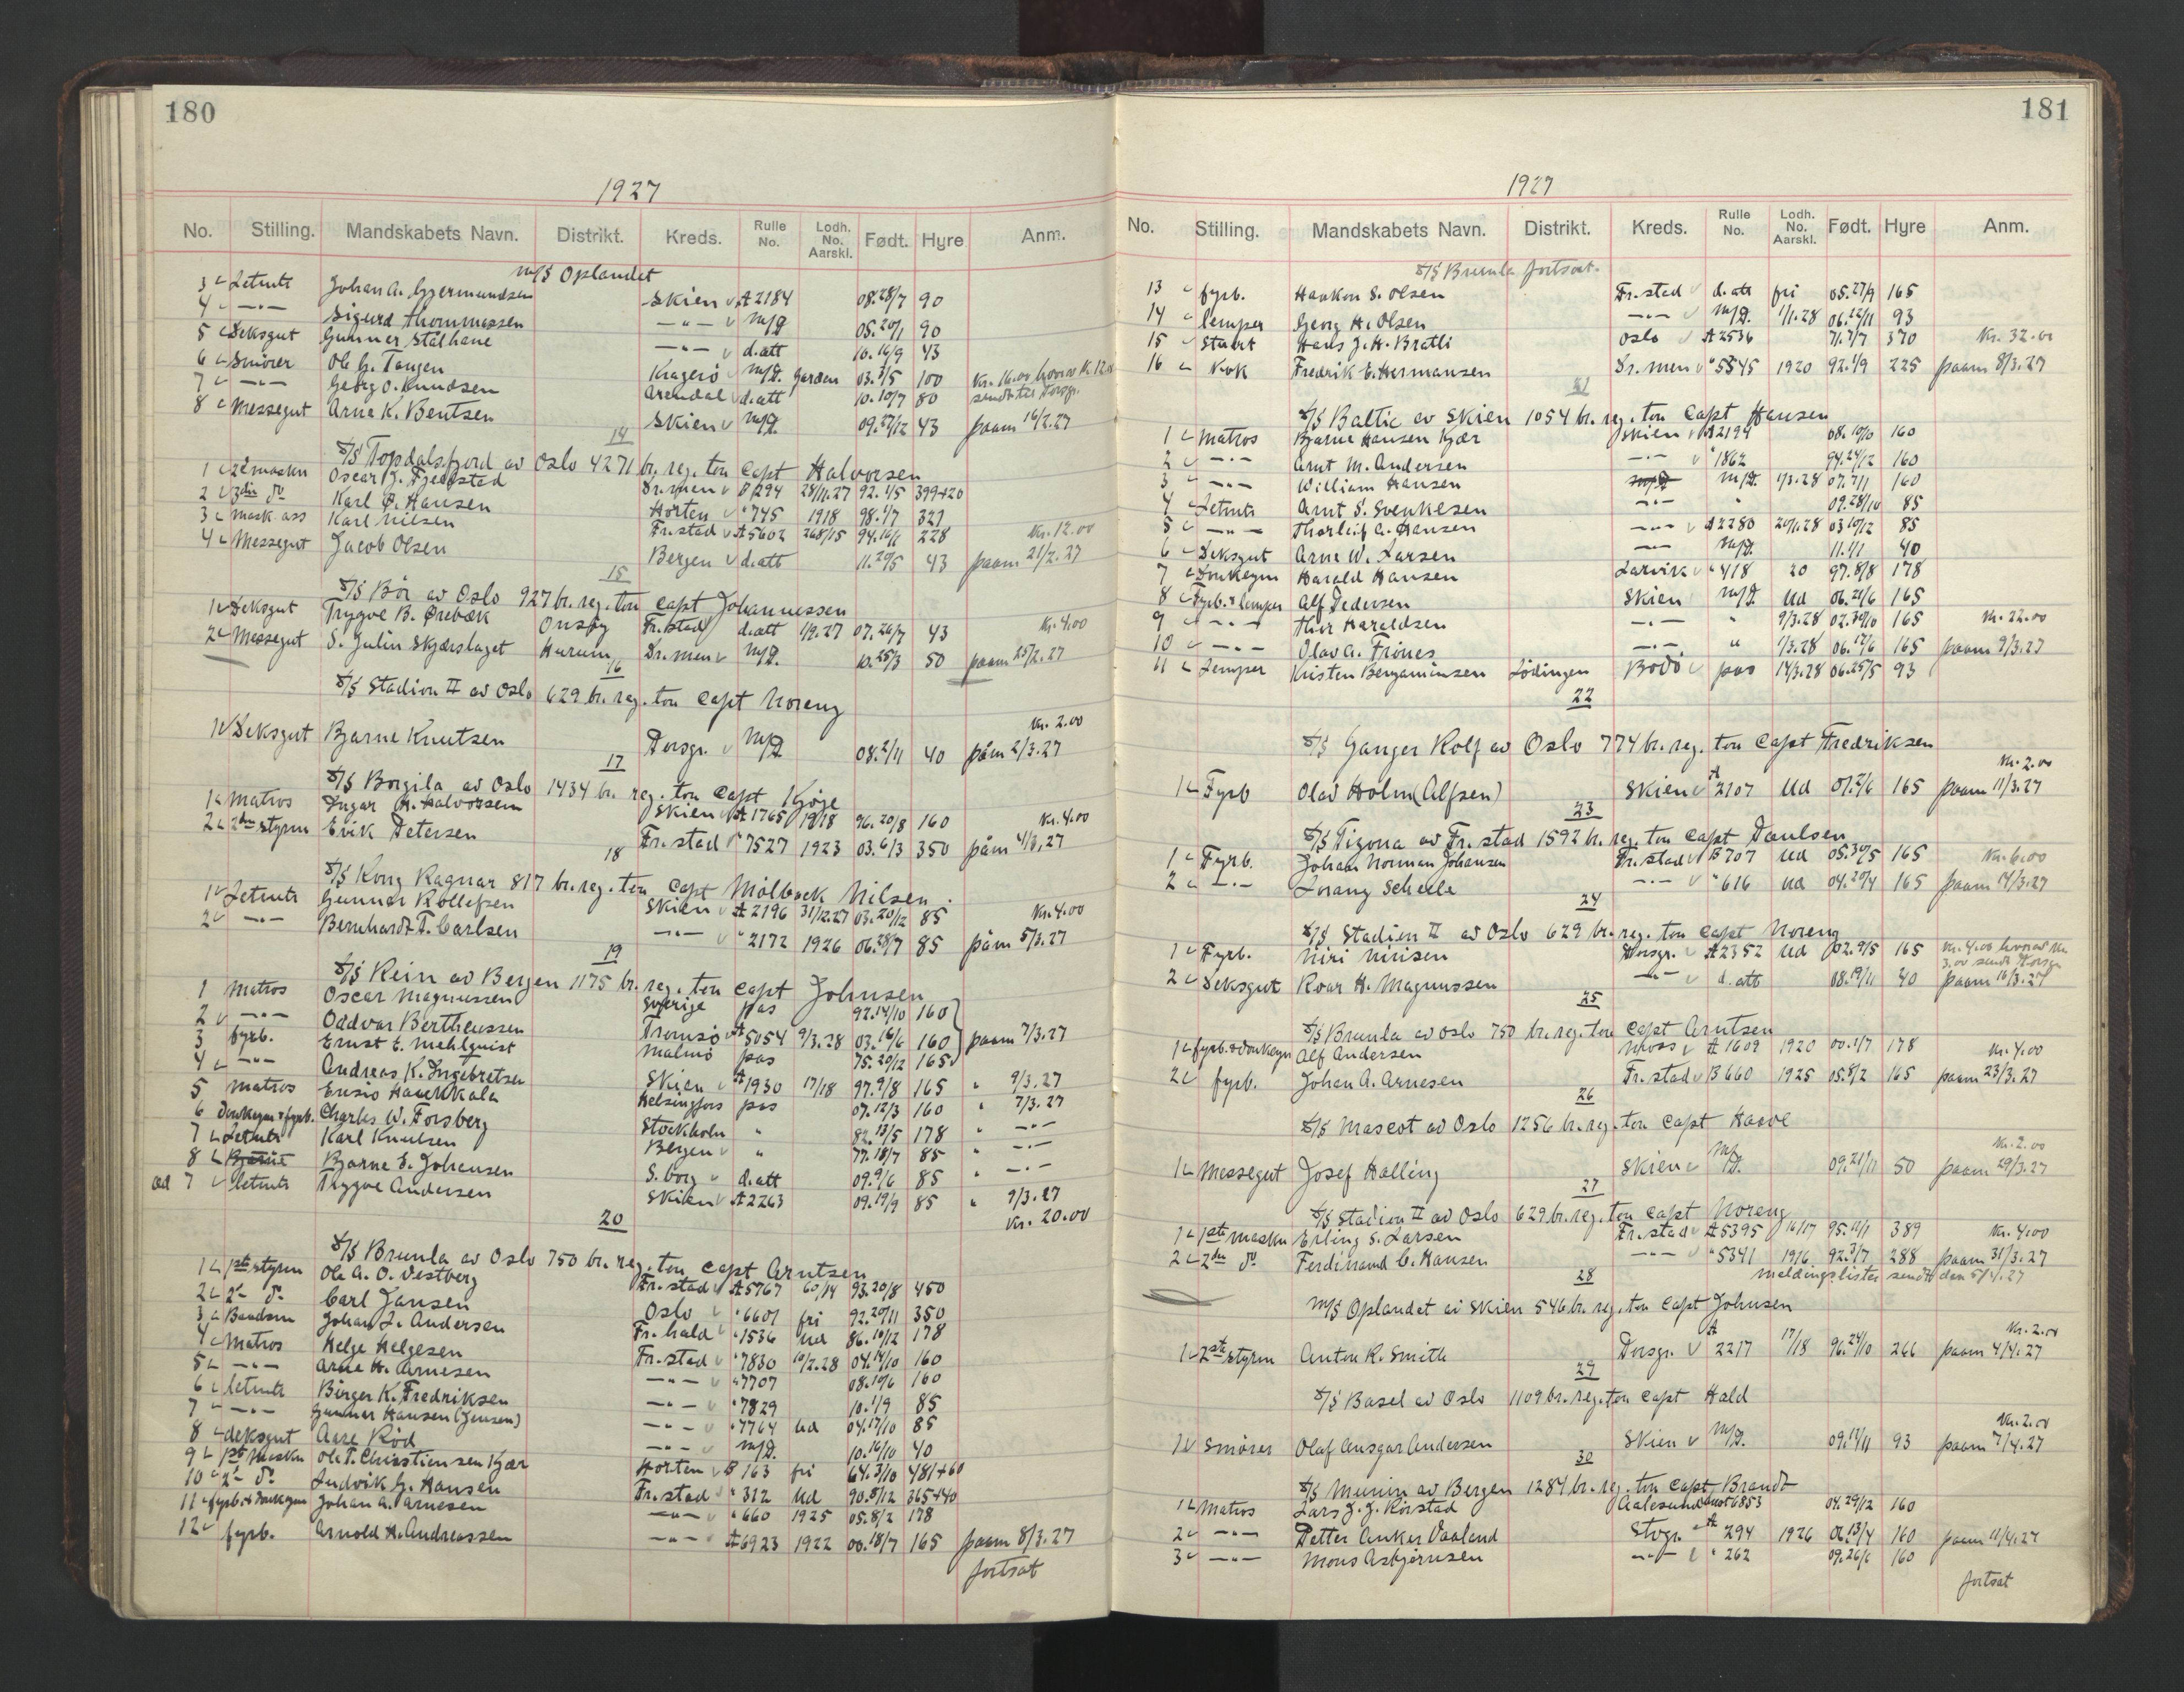 180
1927
No. Stilling. Mandskabets Navn. Distrikt. Kreds. Rulle No. Lodh. No. Aarskl. Født. Hyre Anm.
m/s Oplandet
3 Letmts Johan A. Gjermundsen Skien A 2184 08.28/7 90
4 —"— Sigurd Thommassen —"— m/p. 05.20/1 90
5 Deksgut Gunnar Stalhane —"— d.att 10.16/9 43
6 Smörer Ole G. Tangen Kragerö m/p. Garden 03.3/5 100
7 —"— Georg O. Knudsen Arendal d.att 10.10/7 80
8 Messegut Arne K. Bentsen Skien m/p. 09.27/12 43 paam 16/2.27
14
S/S Topdalsfjord av Oslo 4271 br. reg. ton Capt Halvorsen
1 2den maskn Oscar J. Fjellstad Dr.men B 1294 28/11.27 92.1/5 399+20
2 3die do Karl O. Hansen Horten " 745 1918 98.1/7 321
3 Mask. ass Karl Nilsen Fr.stad A 5602 268/15 94.16/1 228 Kr. 12.00
4 Messegut Jacob Olsen Bergen d.att 11.20/5 43 paam 21/2.27
15
S/S Bör av Oslo 927 br. reg. ton Capt Johannessen
1 Deksgut Trygve B. Örebæk Onsöy Fr.stad d.att 1/9.27 07.26/7 43 Kr. 4.00
2 Messegut S. Julin Skjærshaget Hurum Dr.men m/p. 10.25/3 50 paam 25/2.27
16
S/S Stadion II av Oslo 629 br. reg. ton Capt Noreng
Kr. 2.00
1 Deksgut Bjarne Knutsen Porsgr. m/p. 08.2/11 40 påm 2/3.27
17
S/S Borgila av Oslo 1434 br. reg. ton Capt Kjöge
1 Matros Ingar H. Halvorsen Skien A 1765 1918 96.20/8 160 Kr. 4.00
2 2den styrm Erik Petersen Fr.stad " 7527 1923 03.6/3 350 påm 4/3.27
18
S/S Kong Ragnar 817 br. reg. ton Capt Mölback Nilsen.
1 Letmts Gunnar Rollefsen Skien A 2196 31/12.27 03.20/12 85 Kr. 4.00
2 —"— Bernhardt T. Carlsen —"— " 2172 1926 06.28/7 85 påm 5/3.27
19
S/S Rein av Bergen 1175 br. reg. ton Capt Johnsen
1 Matros Oscar Magnussen Sverige pas 92.14/10 160
2 —"— Oddvar Bertheussen Tromsö A 5054 9/3.28 03.16/6 160 paam 7/3.27
3 fyrb. Ernst E. Mehlquist Malmö pas 75.20/12 165
4 —"— Andreas K. Ingebretsen Skien A 1930 17/18 97.9/8 165 " 9/3.27
5 Matros Ensio Haukkala Helsingfors pas 07.12/3 160 " 7/3.27
6 Donkeym & fyrb. Charles W. Forsberg Stockholm " 82.13/5 178 " —"—
7 Letmts Karl Knutsen Bergen " 77.18/7 85 " —"—
8 Bjarne E. Johansen S.borg d.att 09.9/6 85 " —"—
ad 7 letmts Trygve Andersen Skien A 2263 09.19/9 85 " 9/3.27
20 Kr. 20.00
S/S Brunla av Oslo 750 br. reg. ton Capt Arntsen
1 1ste styrm Ole A. O. Vestberg Fr.stad A 5767 60/14 93.20/8 450
2 2. do Carl Jansen Oslo " 6601 fri 92.20/11 350
3 Baadsm Johan L. Andersen Fr.hald " 1536 Ud 86.10/12 178
4 Matros Helge Helgesen Fr.stad " 7830 10/2.28 04.14/10 160
5 —"— Arne H. Arnesen —"— " 7707 08.10/6 160
6 letmts Birger K. Fredriksen —"— " 7829 10.1/9 85
7 —"— Gunnar Hansen (Jensen) —"— " 7764 Ud 04.17/10 85
8 deksgut Aase Röd —"— m/p. 10.16/10 40
9 1st maskn Ole T. Christiensen Kjær Horten B 163 fri 64.3/10 481+60
10 2. do Ludvik G. Hansen Fr.stad " 312 Ud 90.8/12 365+40
11 fyrb. & donkeym Johan A. Arnesen —"— " 660 1925 05.8/2 178
12 fyrb. Arnold H. Andreassen —"— A 6923 1922 00.18/7 165 paam 8/3.27
fortsat
181
1927
No. Stilling. Mandskabets Navn. Distrikt. Kreds. Rulle No. Lodh. No. Aarskl. Født. Hyre Anm.
S/S Brunla fortsat.
13 fyrb. Haakon S. Olsen Fr.stad d.att fri 05.27/9 165
14 lemper Georg H. Olsen —"— m/p. 1/1.28 06.12/11 93
15 Stuert Hans J. H. Bratli Oslo A 2536 71.7/7 370 Kr. 32.00
16 Kok Fredrik E. Hermansen Dr.men " 5545 1920 92.1/9 225 paam 8/3.27
21
S/S Baltic av Skien 1054 br. reg. ton Capt Hansen
1 Matros Bjarne Hansen Kjær Skien A 2194 08.10/10 160
2 —"— Arnt M. Andersen —"— " 1862 94.24/12 160
3 —"— William Hansen m/p. 1/3.28 07.7/1 160
4 Letmts Arnt S. Svenkesen —"— " 09.28/10 85
5 —"— Thorleif A. Hansen —"— A 2280 20/1.28 03.10/12 85
6 Deksgut Arne W. Larsen —"— m/p. 11.1/1 40
7 Donkeym Harald Hansen Larvik " 418 20 97.8/8 178
8 Fyrb. & lemper Alf Pedersen Skien m/p. Ud 06.21/6 165
9 —"— Thor Haraldsen —"— " 9/3.28 02.30/10 165 Kr. 22.00
10 —"— Olav A. Frönes —"— " 1/3.28 06.12/6 165 paam 9/3.27
11 Lemper Kristen Bergaminsen Lödingen Bodö pas 14/3.28 06.25/5 93
22
S/S Ganger Rolf av Oslo 774 br. reg. ton Capt Fredriksen
Kr. 2.00
1 Fyrb Olav Holm (Alfsen) Skien A 2107 Ud 07.2/6 165 paam 11/3.27
23
S/S Tizona av Fr.stad 1592 br. reg. ton Capt Paulsen
1 Fyrb. Johan Norman Johansen Fr.stad B 707 Ud 05.30/5 165 Kr. 6.00
2 —"— Lorang Scheele —"— " 616 Ud 04.20/4 165 paam 14/3.27
24
S/S Stadion II av Oslo 629 br. reg. ton Capt Noreng
1 Fyrb. Niri Nirisen Porsgr. A 2352 Ud 02.9/5 165 Kr. 4.00 hvorav Kr. 3.00 sendt Porsgr
2 Deksgut Roar H. Magnussen —"— d.att 08.19/11 40 paam 16/3.27
25
S/S Brunla av Oslo 750 br. reg. ton Capt Arntsen
1 fyrb. & donkeym Alf Andersen Moss A 1609 1920 00.1/7 178 Kr. 4.00
2 fyrb. Johan A. Arnesen Fr.stad B 660 1925 05.8/2 165 paam 23/3.27
26
S/S Mascot av Oslo 1256 br. reg. ton Capt Haave
Kr. 2.00
1 Messegut Josef Halling Skien m/p. 09.21/11 50 paam 29/3.27
27
S/S Stadion II av Oslo 629 br. reg. ton Capt Noreng
1 1ste maskn Erling S. Larsen Fr.stad A 5395 16/17 95.12/1 389 Kr. 4.00
2 2den do Ferdinand C. Hansen —"— " 5341 1916 92.3/7 288 paam 31/3.27
28 meldingslister sendt den 5/4.27
m/s Oplandet av Skien 546 br. reg. ton Capt Johnsen
Kr. 2.00
1 2den styrm Anton R. Smith Porsgr. A 2217 17/18 96.24/10 266 paam 4/4.27
29
S/S Basel av Oslo 1109 br. reg. ton Capt Hald
Kr. 2.00
1 Smörer Olaf Ansgar Andersen Skien m/p. 09.12/11 93 paam 7/4.27
30
S/S Munin av Bergen 1284 br. reg. ton Capt Brandt
1 Matros Lars J. J. Rörstad Aalesund 6853 04.29/12 160
2 —"— Petter Anker Vaaland Stvgr. A 294 1926 06.13/4 160 paam 11/4.27
3 —"— Mons Asbjörnsen —"— " 262 09.26/1 160
fortsat